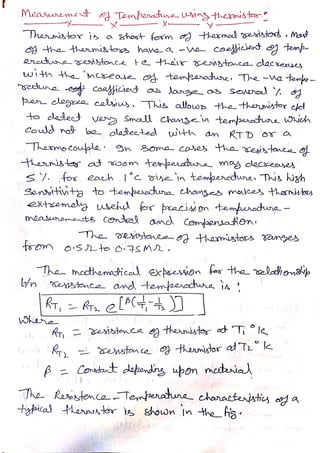 Measurement of Temperature using thermistor:
Thermistor is a short form of thermal resistors. Most
of the thermistors have a -ve coefficient of temp-
erature resistance i.e their resistance decreases
with the increase of temperature. The -ve tempe-
rature coefficient as large as several % of
per degree celsius. This allows the thermistor ckt
to detect very small change in temperature which
could not be detected with an RTD or a
Thermocouple. In some cases the resistance of
thermistor at room temperature may decreases
5% for each 1°c rise in temperature. This high
Sensitivity to temperature changes makes thermistors
extremely useful for precision temperature -
measurements contral and compensation.
The resistance of thermistors ranges
from 0.5Ω to 0.75MΩ.
The mathematical expression for the relationship
b/n resistance and temperature is:
RT₁ = RT₂ e[β(1/T₁ - 1/T₂)]
where
RT₁ = resistance of thermistor at T₁°K
RT₂ = resistance of thermistor at T2°K
β = Constant depending upon material
The Resistance - Temperature characteristics of a
typical thermistor is shown in the fig.